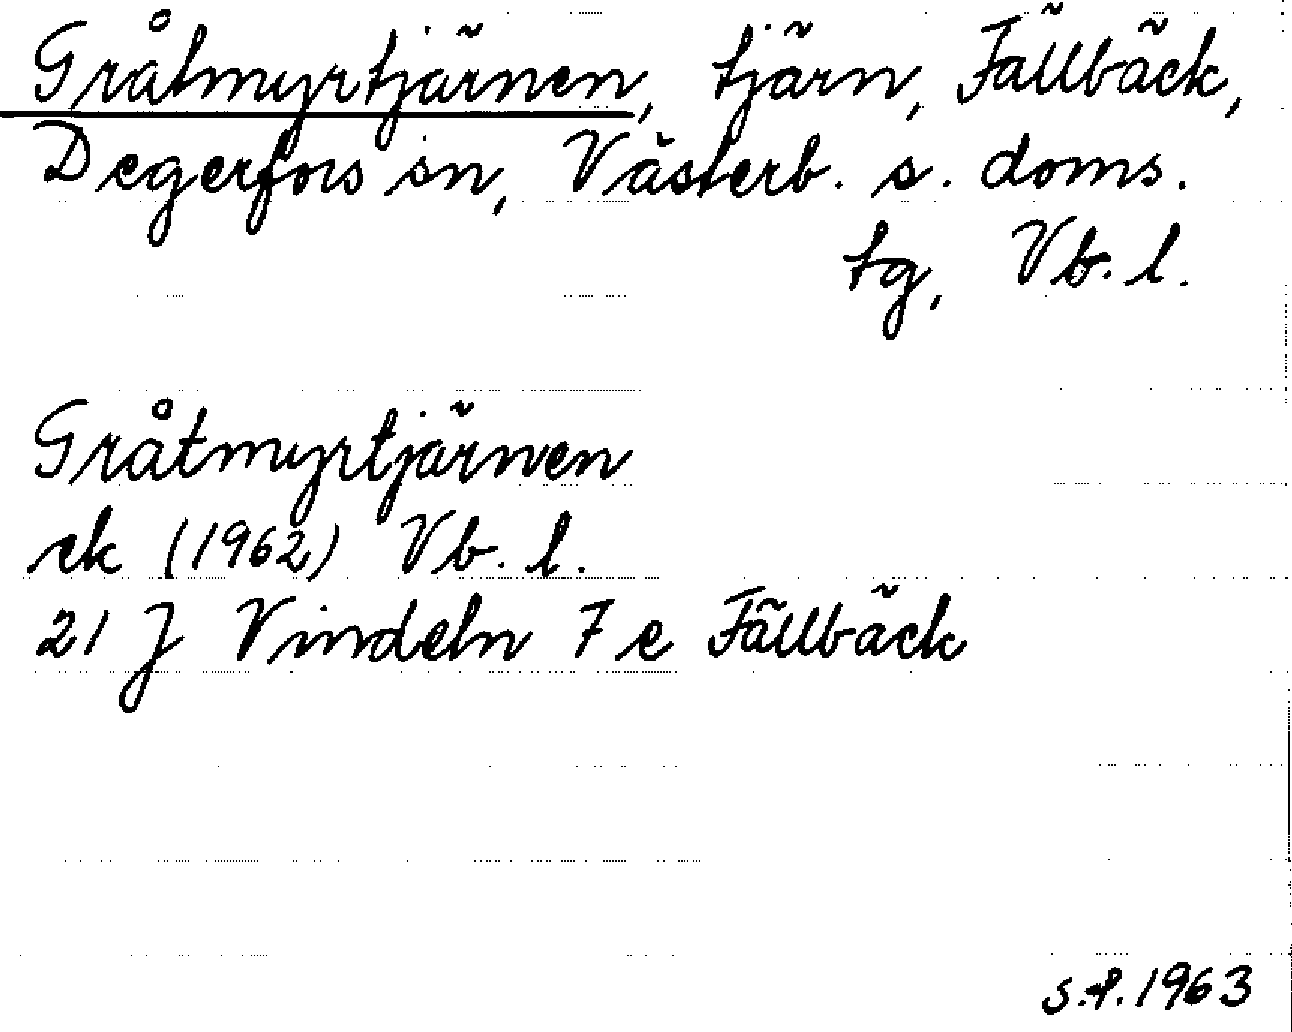 Gråtmyrtjärnen, tjärn, Fällbäck,
Degerfors sn, Västerb. s. doms.
tg, Vb. l.
Gråtmyrtjärnen
ek (1962) Vb. l.
21 J Vindeln 7 e Fällbäck
s.f. 1963